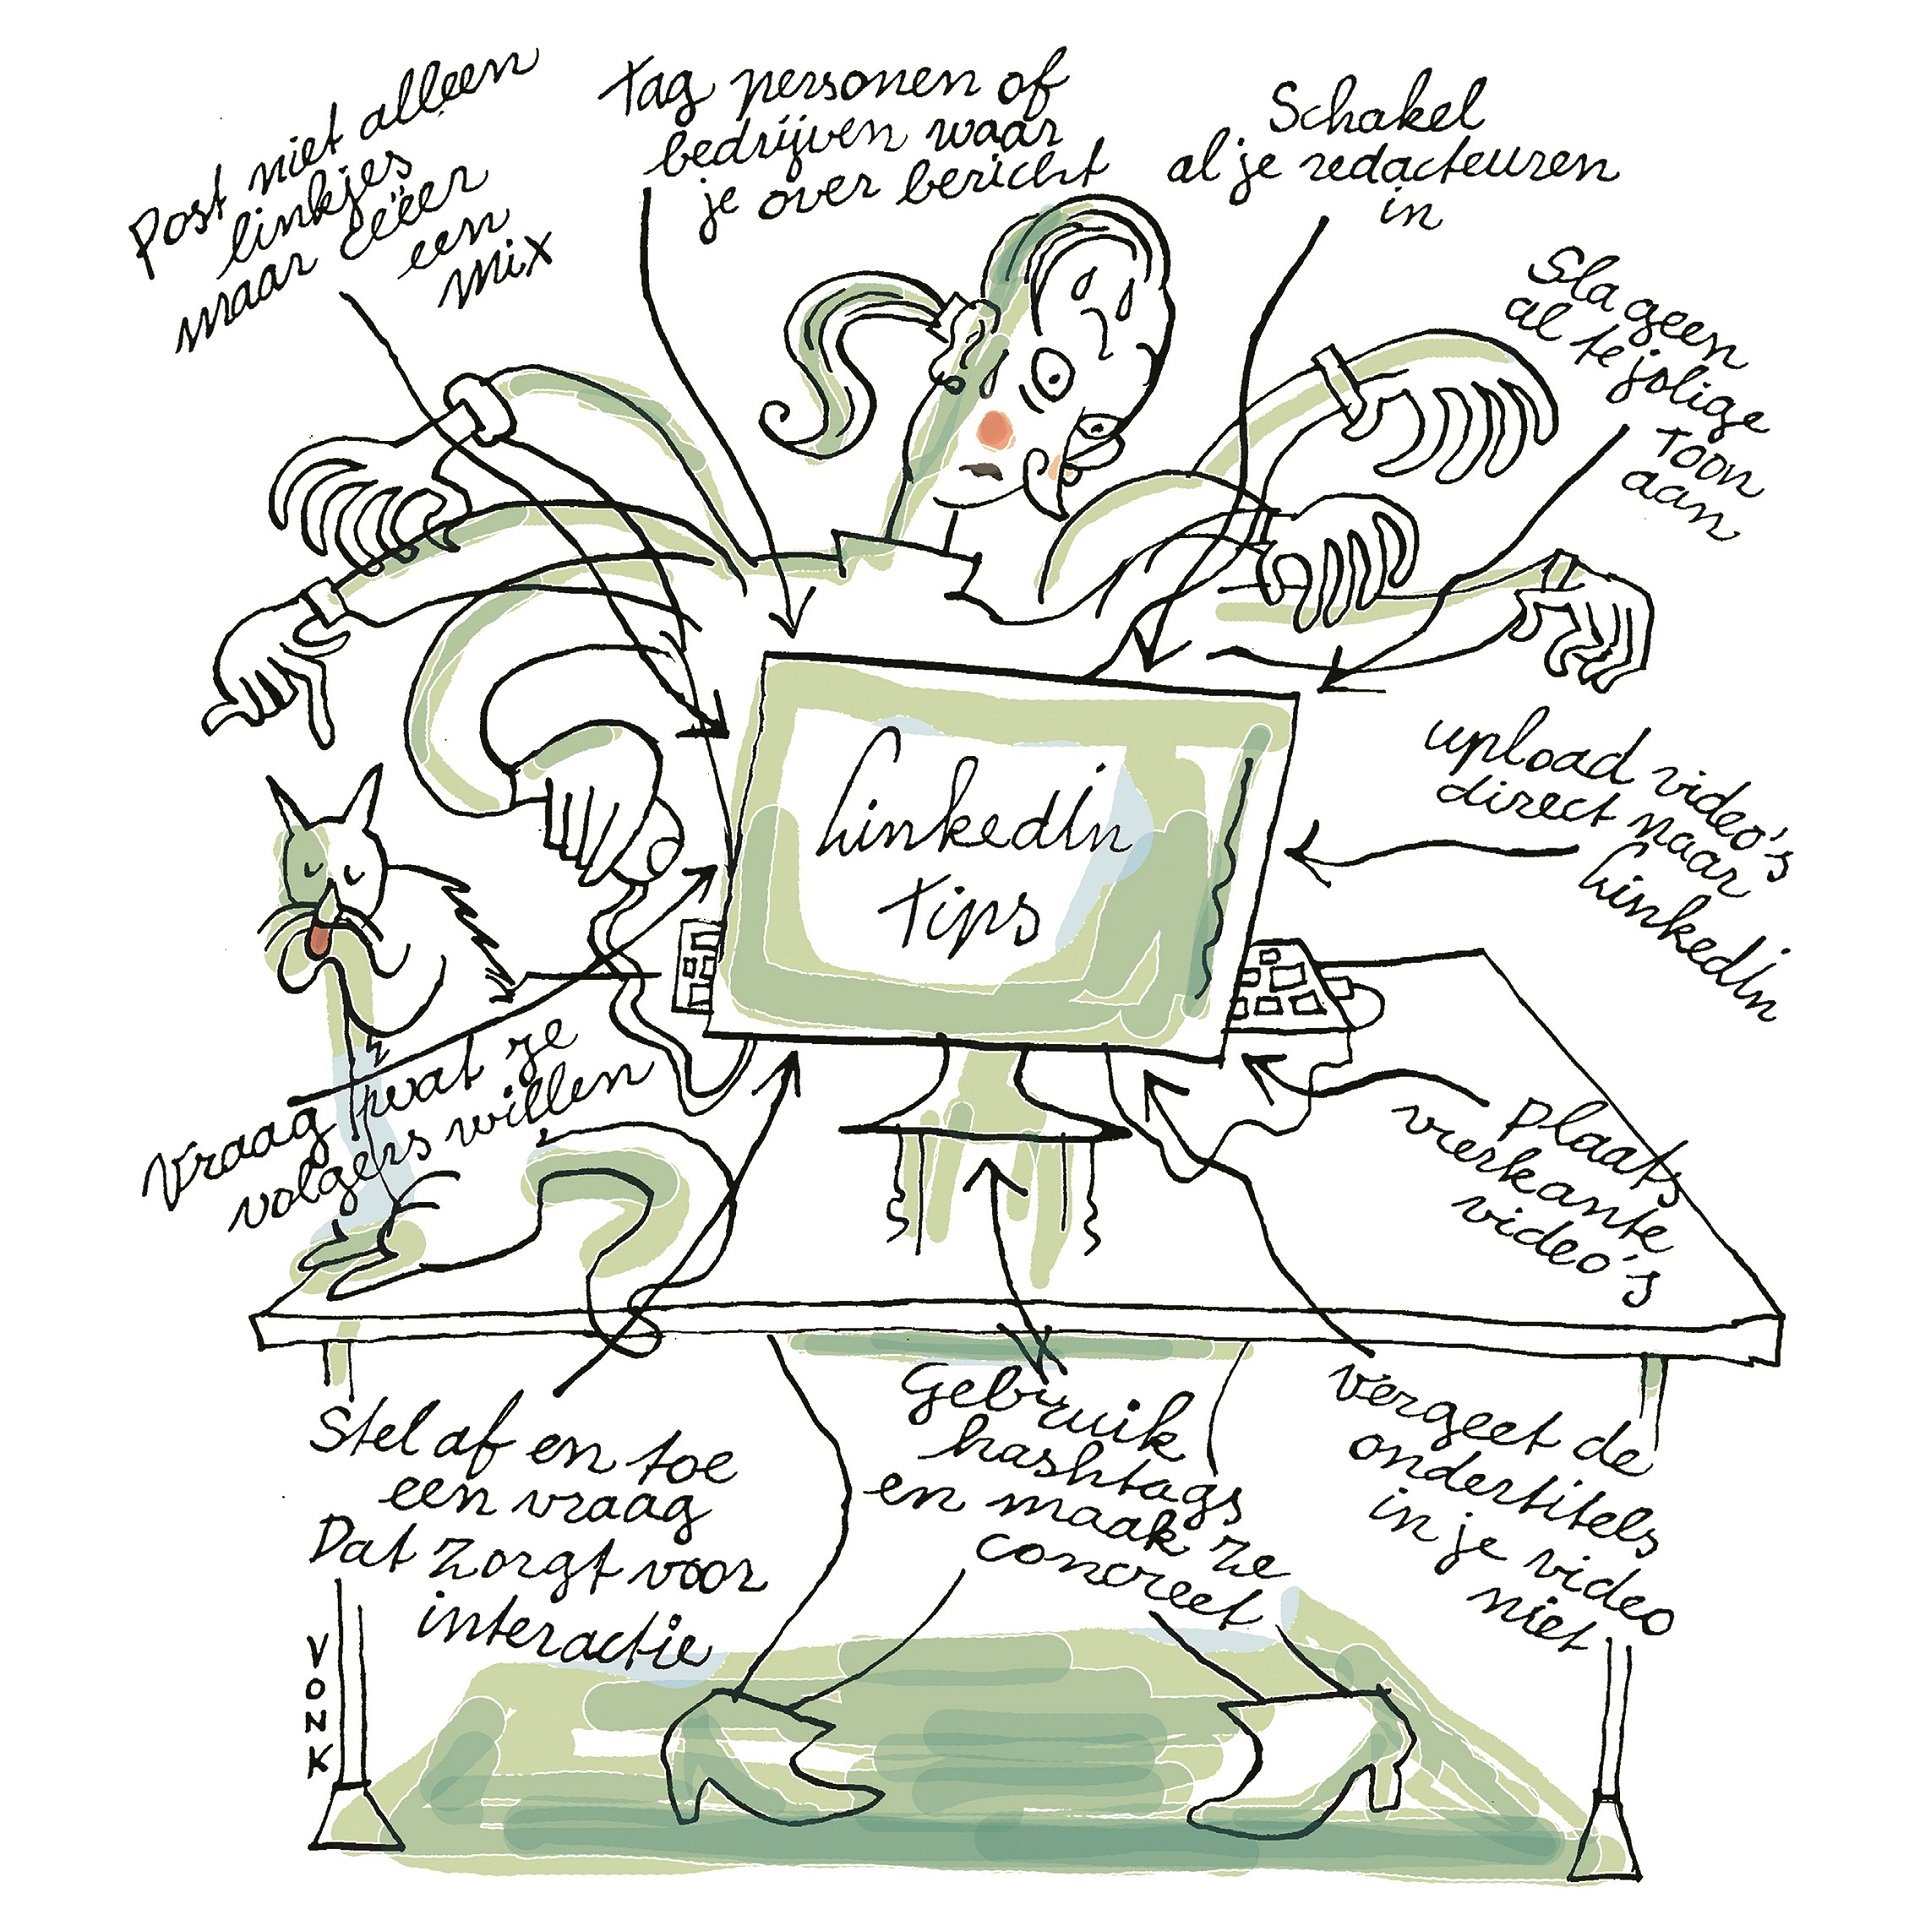 Post niet alleen
linkjes
maar eëer
een
mix
Tag personen of
bedrijven waar
je over bericht
Schakel
al je redacteuren
in
Sla geen
al te jolige
toon
aan
upload video's
direct naar
LinkedIn
LinkedIn
tips
plaats
vierkante
video's
Vraag wat ze
volgers willen
Stel af en toe
een vraag
Dat zorgt voor
interactie
Gebruik
hashtags
en maak ze
concreet
vergeet de
ondertitels
in je video
niet
VONK